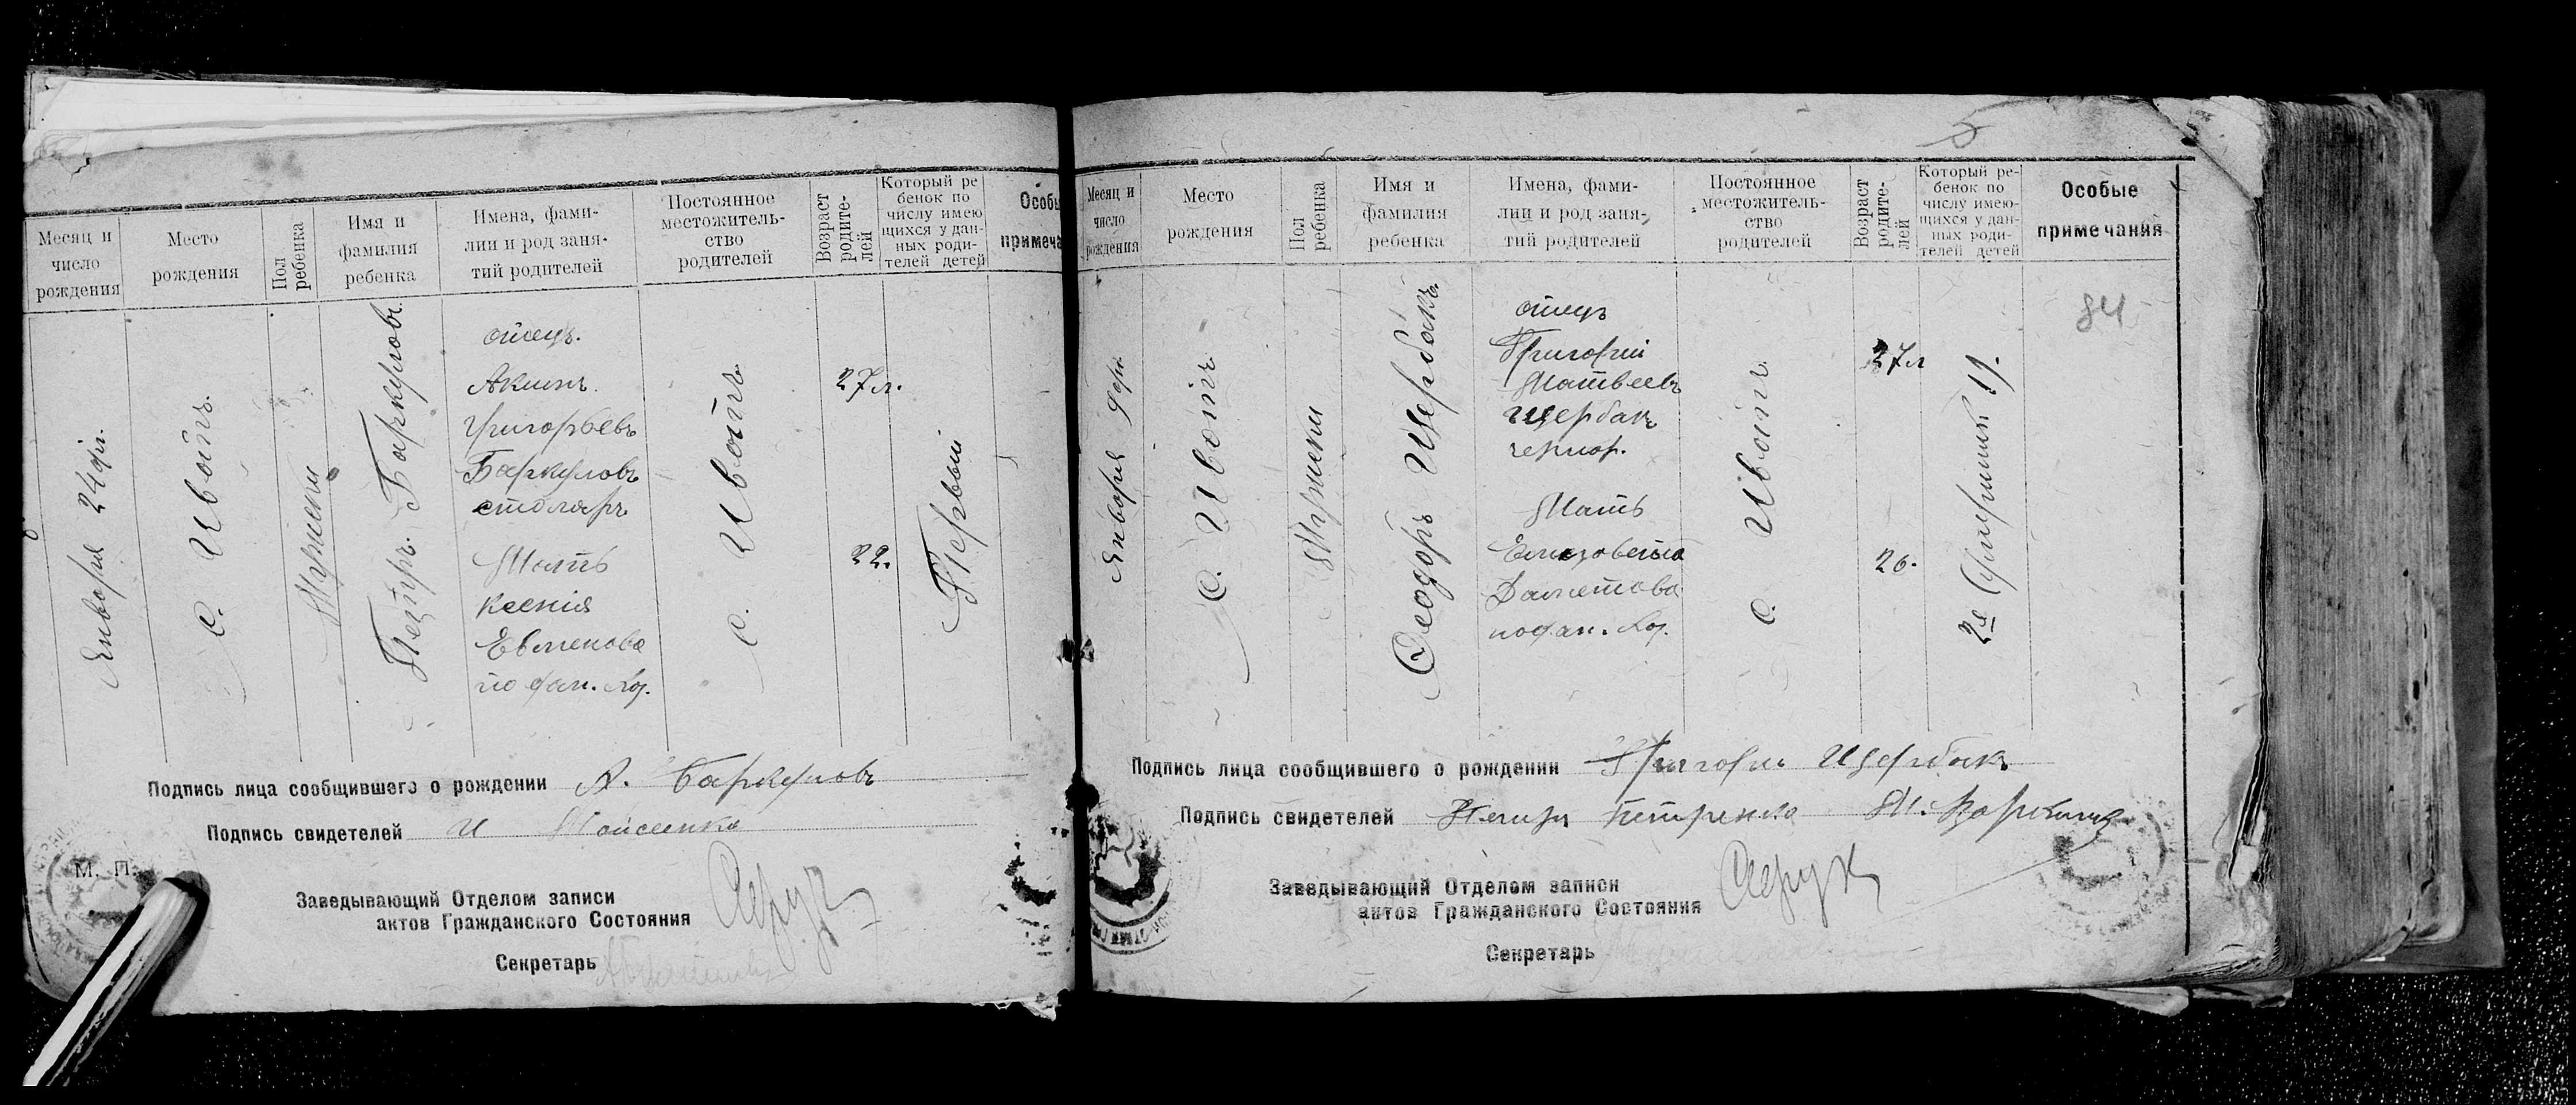 Месяц и число рождения
Место рождения
Пол ребенка
Имя и фамилия ребенка
Имена, фами-
лии и род заня-
тий родителей
Постоянное
местожитель-
ство
родителей
Возраст
родите-
лей
Который ре
бенок по
числу имею
щихся у дан-
ных роди-
телей детей
Особы
примеча
Января 24 дн.
с. Ивотъ
Мужески
Петръ Баркуловъ
отецъ.
Акимъ
Григорьевъ
Баркуловъ
столяръ
Мать
Ксенія
Евменова
по дом. хоз.
с. Ивотъ
27 л.
22.
Первый
Подпись лица сообщившего о рождении А. Баркуловъ
Подпись свидетелей И Мойсеенко
М. П.
Заведывающий Отделом записи
актов Гражданского Состояния
Секретарь
5
Месяц и
число
рождения
Место
рождения
Пол
ребенка
Имя и
фамилия
ребенка
Имена, фами-
лии и род заня-
тий родителей
Постоянное
местожитель-
ство
родителей
Возраст
родите-
лей
Который ре-
бенок по
числу имею-
щихся у дан-
ных роди-
телей детей
Особые
примечания
Января 9 дн.
с. Ивотъ
Мужески
Феодоръ Щербакъ
отецъ
Григорий
Матвеевъ
Щербакъ
чернор.
Мать
Елизовета
по дом. хоз.
с. Ивотъ
27 л
26.
2й
84
Подпись лица сообщившего о рождении Григори Щербакъ
Подпись свидетелей Петренко М.
Заведывающий Отделом записи
актов Гражданского Состояния
Секретарь